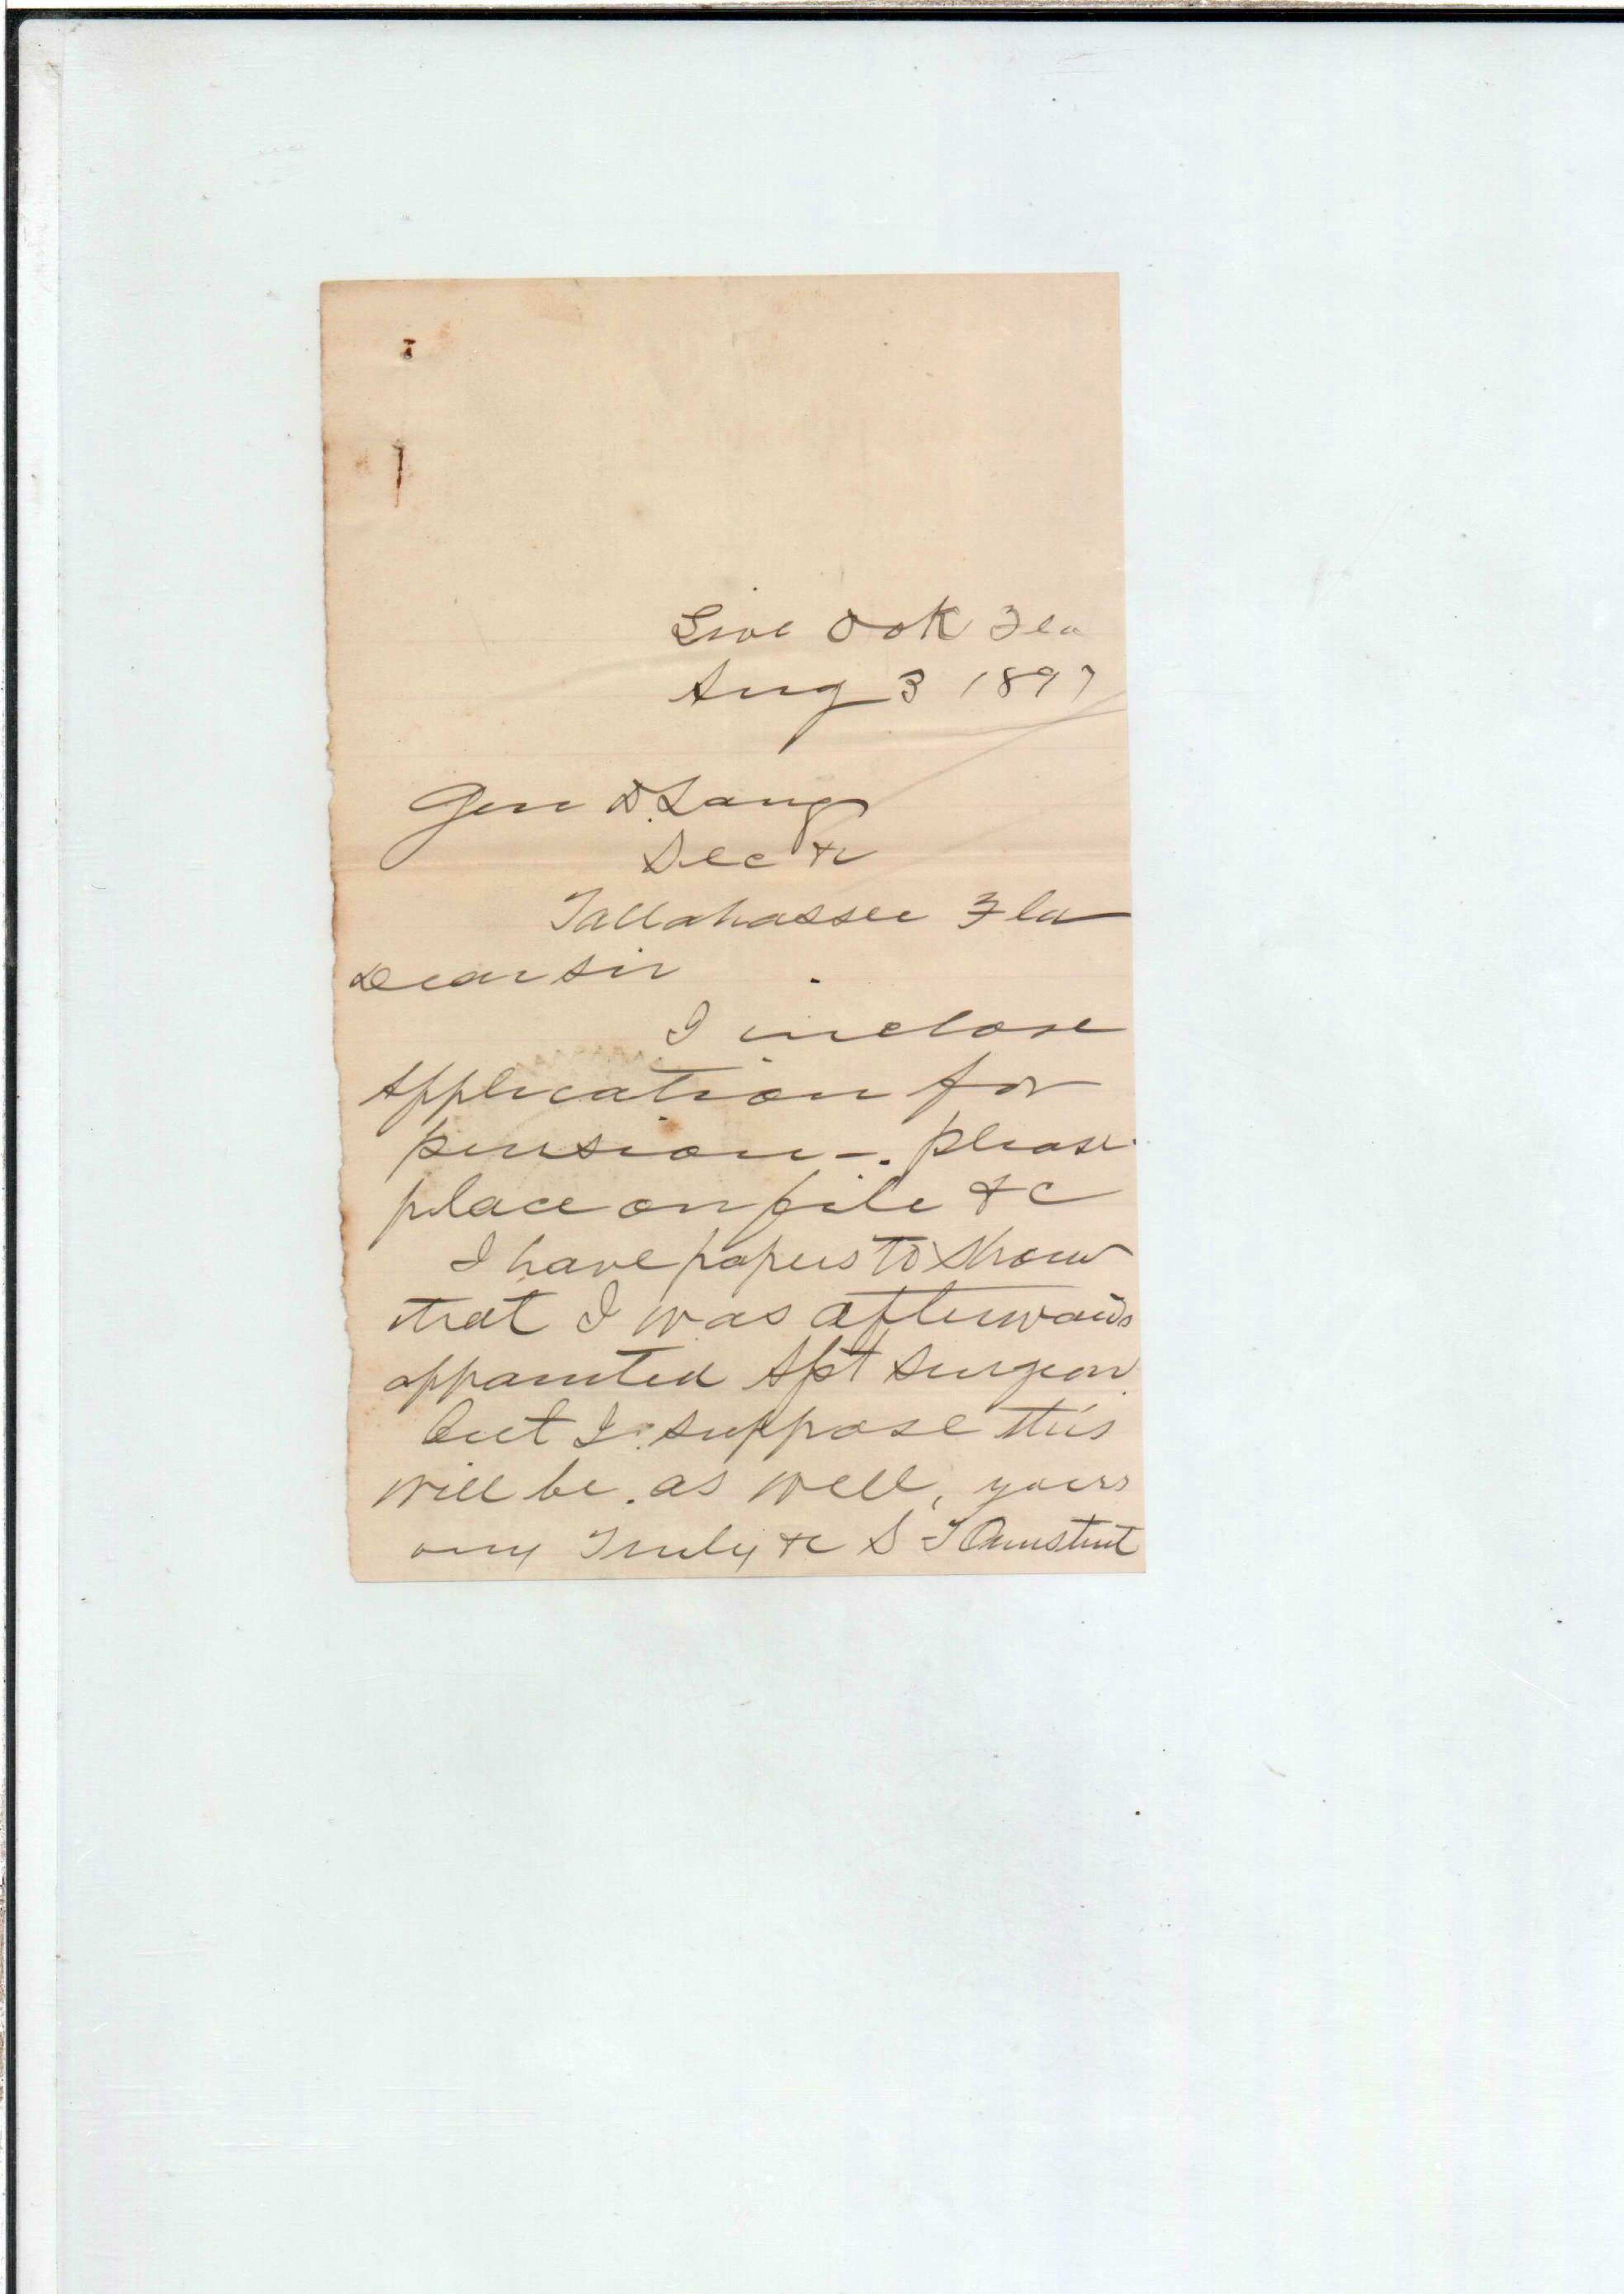 Live Oak Fla
Aug 3 1897
Gen D. Lang
Sec &c
Tallahassee Fla
Dear Sir
I inclose
Application for
pension -. please
place on file &c
I have papers to show
that I was afterwards
appointed Asst Surgeon
but I suppose this
will be as well, yours
very Truly &c S T